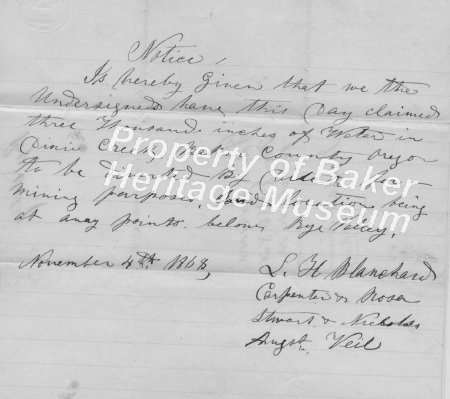 Notice,
Is hereby Given that we the
Undersigned have this Day claimed
three Thousand inches of Water in
Creek, Baker County Oregon
to be diverted By
mining purposes, said location being
at any point below Rye Valley.
November 4th. 1868,
L. H. Blanchard
Carpenter & Rosa
Stwart & Nicholds
August Veil
Property of Baker
Heritage Museum